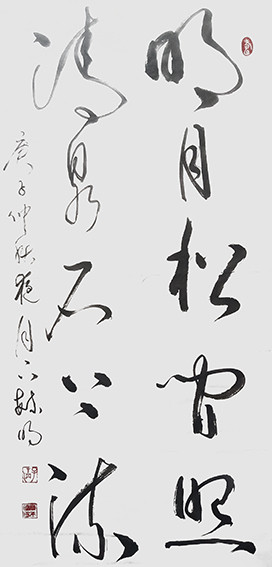 明月松間照
清泉石上流
庚子仲秋